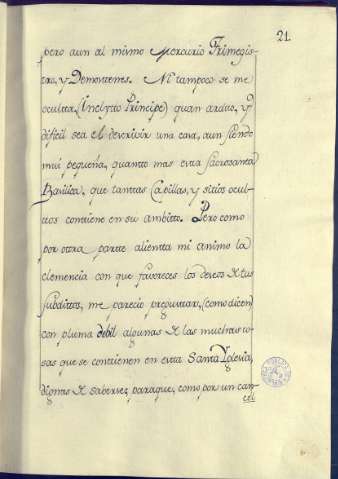 21
pero aun al mismo Mercurio Trimegis-
tro, y Demostenes. Ni tampoco se me
oculta, (Inclyto Principe) quan arduo, y
dificil sea el descrivir una casa, aun siendo
mui pequeña, quanto mas esta sacrosanta
Basilica, que tanttas Capillas, y sitios ocul-
ttos contiene en su ambitto. Pero como
por ottra partte alientta mi animo la
clemencia con que favoreces los deseos de tus
subdittos, me pareció
(como dicen)
con pluma debil algunas de las muchas co-
sas que se contienen en esta Santa Yglesia,
dignas de saberse; paraque, como por un can-
cel